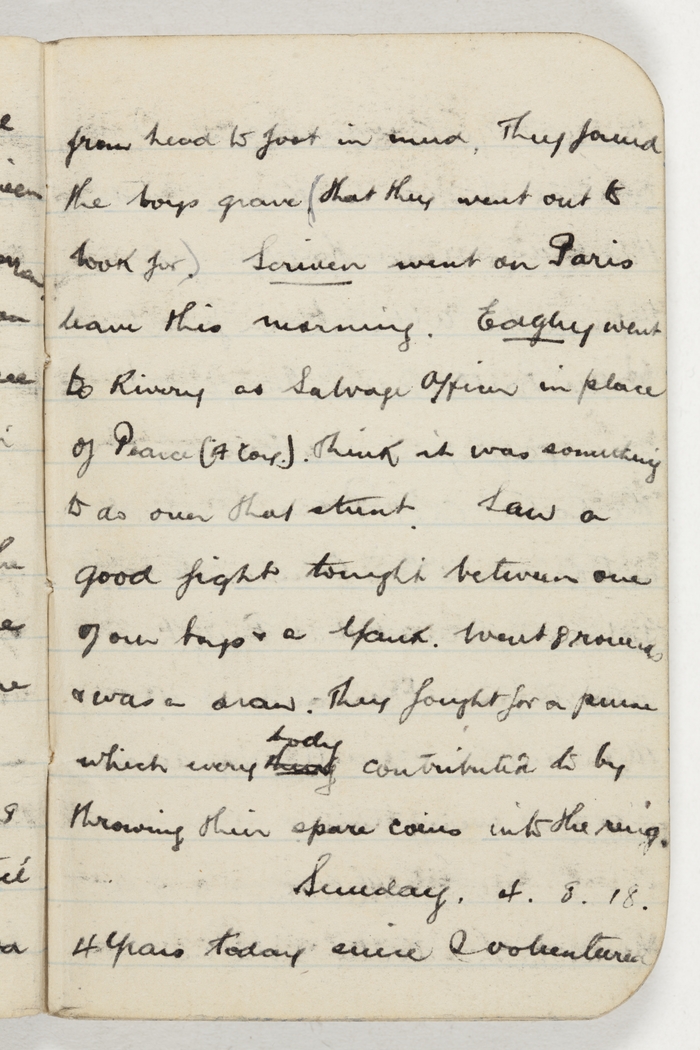 from head to foot in mud. They found
the boys grave (that they went out to
look for). Scriven went on Paris
leave this morning. went
to Rivery as Salvage Officer in place
of Pearce (A Coy.). think it was something
to do over that stunt. Saw a
good fight tonight between one
of our boys & a Yank. Went 8 rounds
& was a draw. They fought for a purse
which every body contributed to by
throwing their spare coins into the ring.
Sunday. 4. 8. 18.
4 Years today since I volunteered